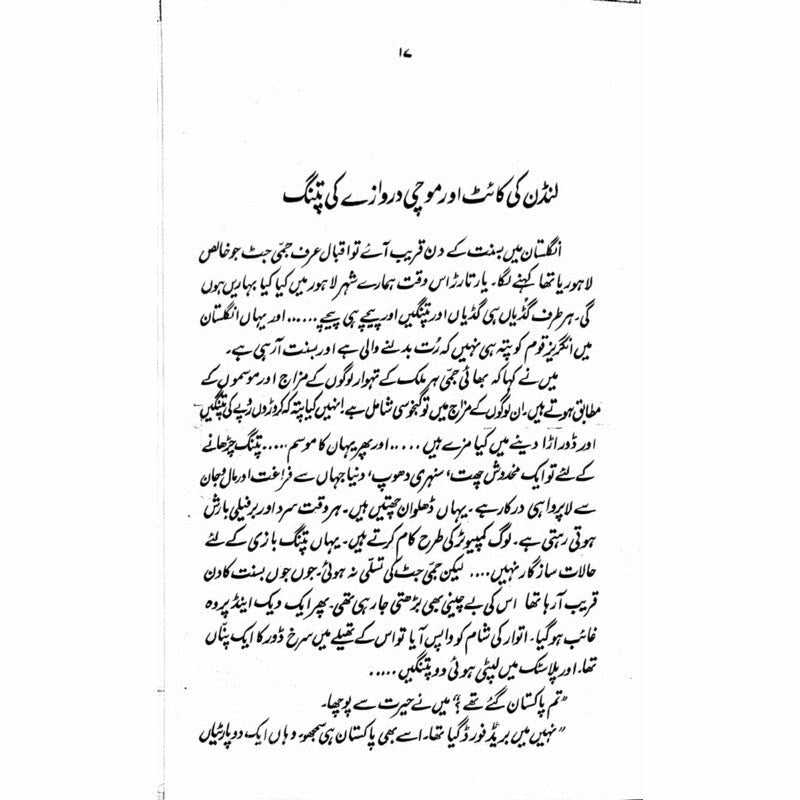 ۱۷
لنڈن کی کائٹ اور موچی دروازے کی پتنگ
انگلستان میں بسنت کے دن قریب آئے تو اقبال عرف جمّی جٹ جو خالص
لاہوریا تھا کہنے لگا۔ یار تارڑ اس وقت ہمارے شہر لاہور میں کیا کیا بہاریں ہوں
گی۔ ہر طرف گُڈیاں ہی گُڈیاں اور پتنگیں اور پیچے ہی پیچے...... اور یہاں انگلستان
میں انگریز قوم کو پتہ ہی نہیں کہ رُت بدلنے والی ہے اور بسنت آ رہی ہے۔
میں نے کہا کہ بھائی جمّی ہر ملک کے تہوار لوگوں کے مزاج اور موسموں کے
مطابق ہوتے ہیں۔ ان لوگوں کے مزاج میں تو کنجوسی شامل ہے! انہیں کیا پتہ کہ کروڑوں روپے کی پتنگیں
اور ڈور اڑا دینے میں کیا مزے ہیں...... اور پھر یہاں کا موسم..... پتنگ چڑھانے
کے لئے تو ایک مخدوش چھت، سنہری دھوپ، دنیا جہاں سے فراغت اور مال و جان
سے لاپرواہی درکار ہے۔ یہاں ڈھلوان چھتیں ہیں۔ ہر وقت سرد اور برفیلی بارش
ہوتی رہتی ہے۔ لوگ کمپیوٹر کی طرح کام کرتے ہیں۔ یہاں پتنگ بازی کے لئے
حالات سازگار نہیں.... لیکن جمّی جٹ کی تسلّی نہ ہوئی۔ جوں جوں بسنت کا دن
قریب آ رہا تھا اس کی بے چینی بھی بڑھتی جا رہی تھی۔ پھر ایک ویک اینڈ پر وہ
غائب ہو گیا۔ اتوار کی شام کو واپس آیا تو اس کے تھیلے میں سرخ ڈور کا ایک پنّاں
تھا۔ اور پلاسٹک میں لپٹی ہوئی دو پتنگیں.....
”تم پاکستان گئے تھے؟“ میں نے حیرت سے پوچھا۔
”نہیں میں بریڈ فورڈ گیا تھا۔ اسے بھی پاکستان ہی سمجھو۔ وہاں ایک دو پارٹیاں